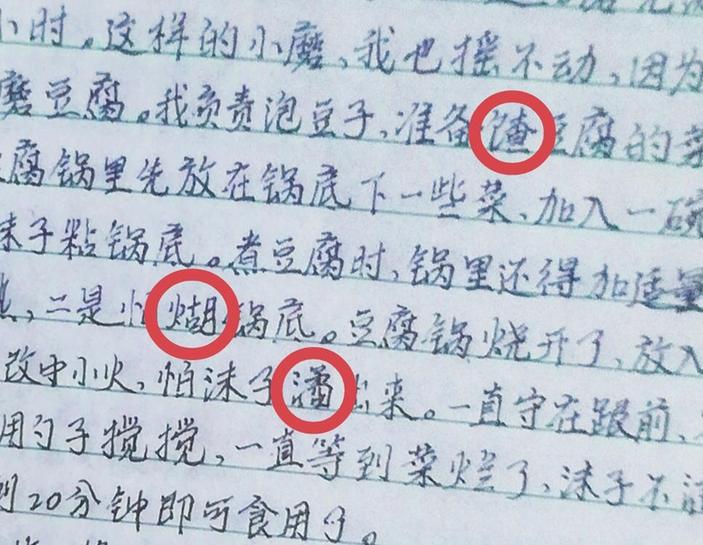 小时。这样的小磨、我也摇不动,因为
磨豆腐。我负责泡豆子,准备馇豆腐的菜
腐锅里先放在锅底下一些菜、加入一碗
沫子粘锅底。煮豆腐时,锅里还得加适量
,二是怕煳锅底。豆腐锅烧开了、放入
改中小火,怕沫子潽出来。一直守在跟前,
用勺子搅搅,一直等到菜烂了,沫子不
20分钟即可食用了。